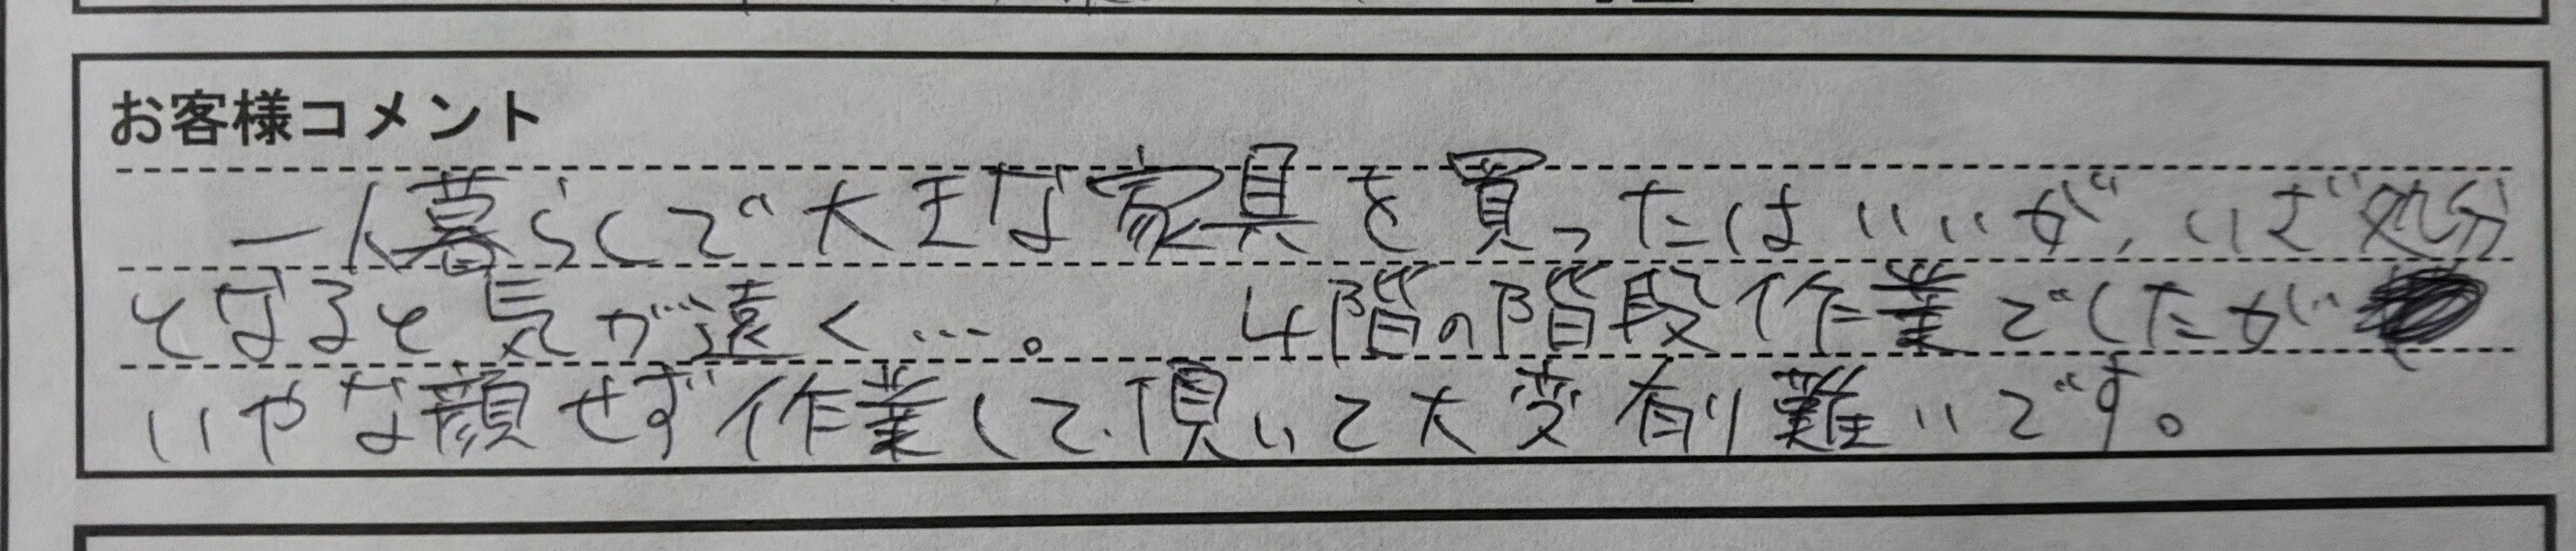 お客様コメント
一人暮らしで大きな家具を買ったはいいが、いざ処分
となると気が遠く…。 4階の階段作業でしたが
いやな顔せず作業して頂いて大変有り難いです。